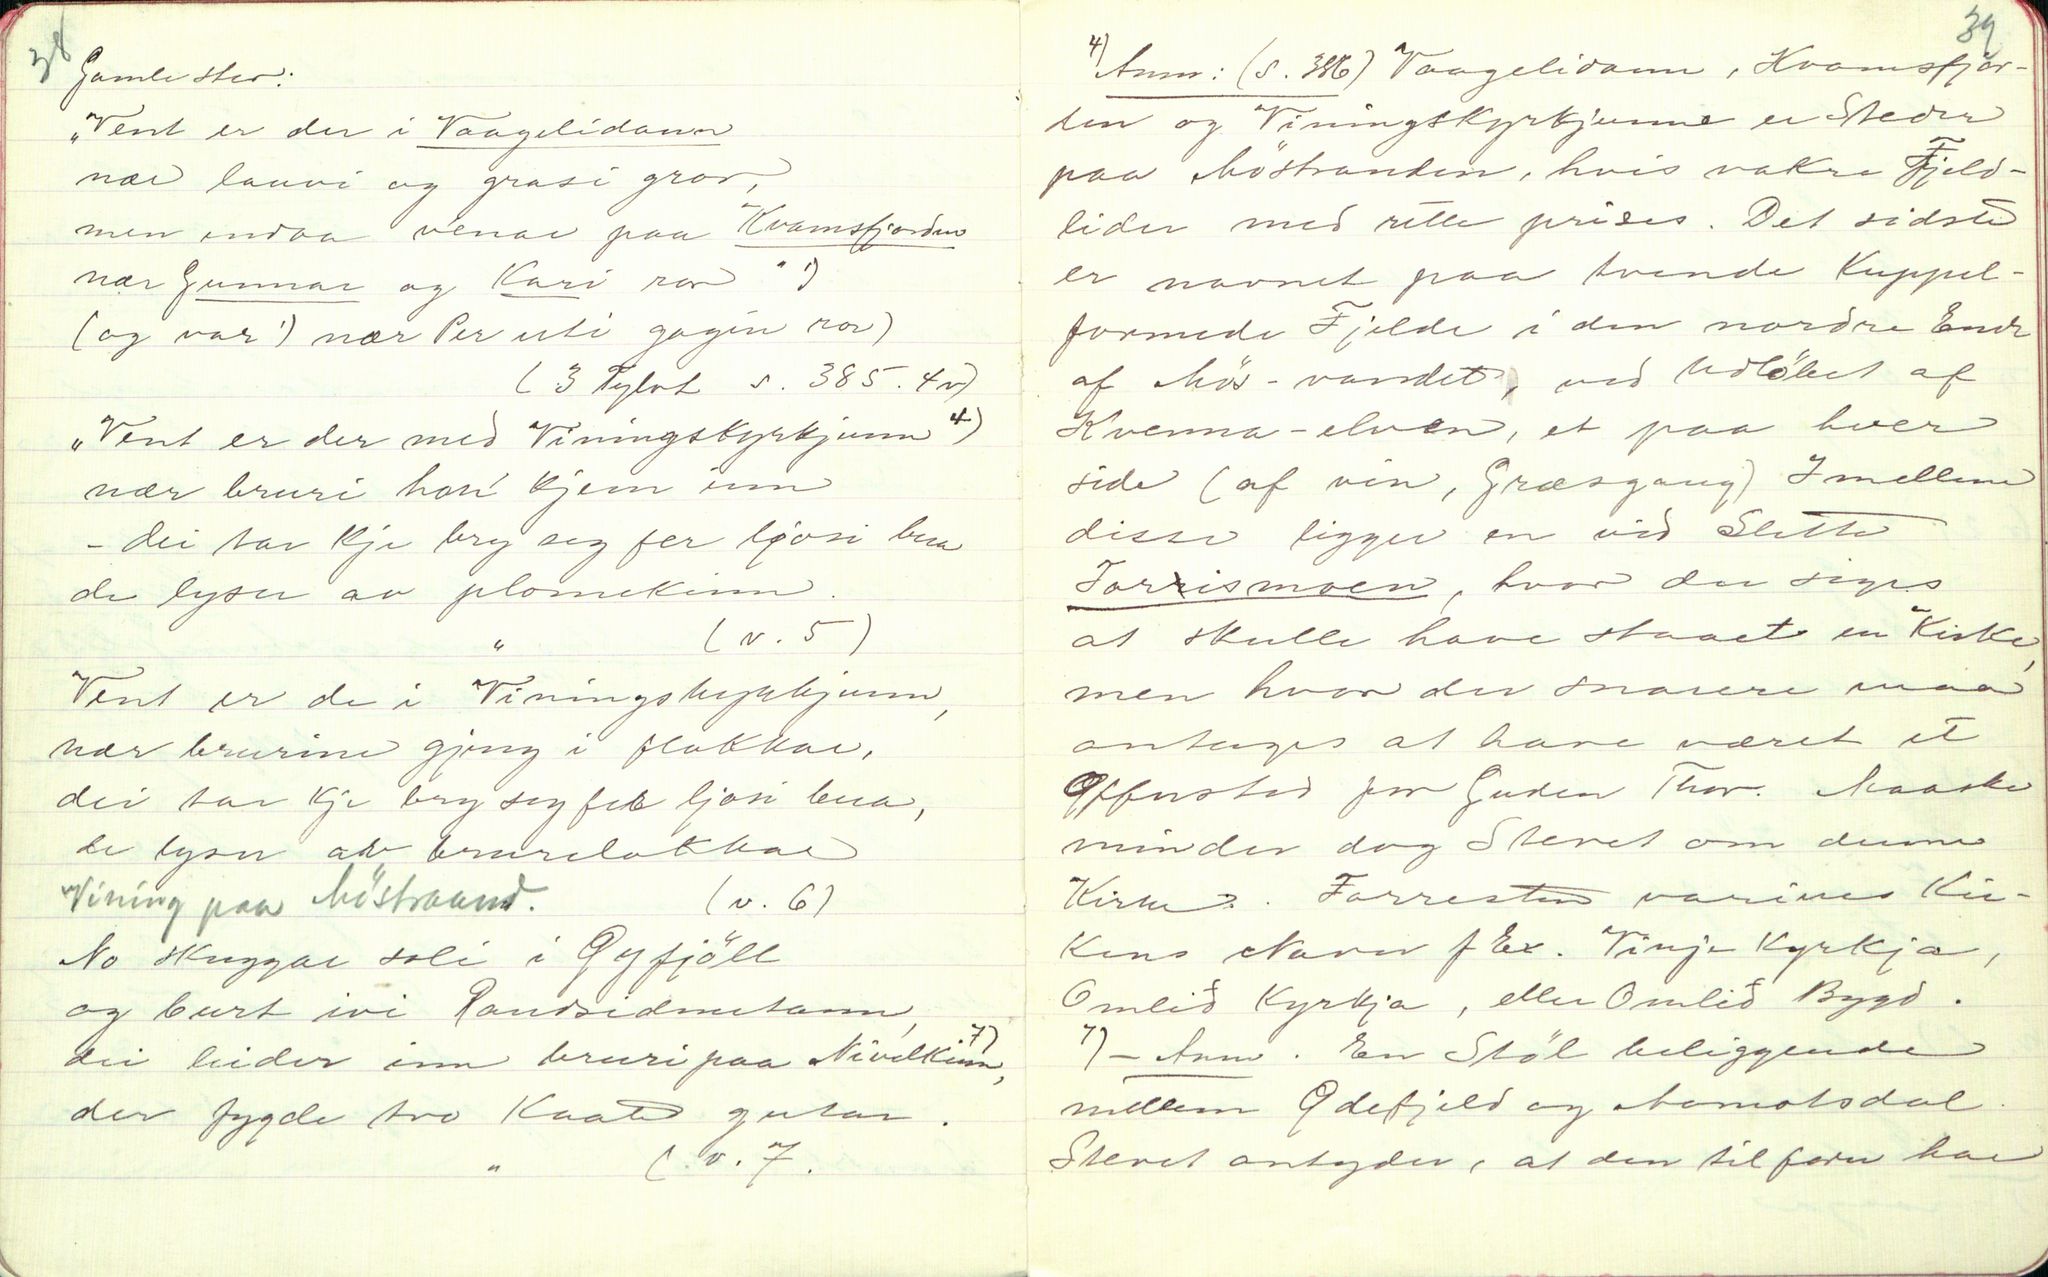 38
Gamle stev:
"Vent er der i Vaagelidann
nær lauvi og grasi gror,
men endaa venar paa Kvamsfjorden
nær Gunnar og Kari ror " 1)
(og var 1) nær Per uti gogin ror)
(3 Tylvt s. 385. 4v)
"Vent er der med Viningskyrkjunn 4)
nær bruri hon kjem inn
- dei tar kje bry seg fer ljosi bera
de lyser av plomekinn.
" (v. 5)
Vent er de i Viningskyrkjunn,
nær brurine gjeng i flokkar,
dei tar kje bry seg feb ljosi bera,
de lyser av brurelokkar
Vining paa Möstraand. (v. 6)
No skuggar soli i Öyfjöll
og burt ivi Randsidnutann,
dei leider inn bruri paa Nivelkinn, 7)
der fygde tvo Kaate gutar.
" (. v. 7.
39
4) Anm: (s. 386) Vaagelidann, Kvamsfjor-
den og Viningskyrkjunne er Steder
paa Möstranden, hvis vakre Fjeld-
lider med rette prises. Det sidste
er navnet paa tvende Kuppel-
formede Fjelde i den nordre Ende
af Mös-vandet, ved Udlöbet af
Kvenna-elven, et paa hver
side (af vin, Græsgang) Imellem
disse ligger en vid Slette
Torrismoen, hvor der siges
at skulle have staaet en Kirke,
men hvor der snarere maa
antages at have været et
Offersted for Guden Thor. Maaske
minder dog Stevet om denne
Kirke. Forresten varieres Kir-
kens Navn f Ex. Vinje Kyrkja,
Omlid Kyrkja, eller Omlid Bygd.
7) - Anm. En Stöl beliggende
mellem Ödefjeld og Aamotsdal.
Stevet antyder, at den tilforn har